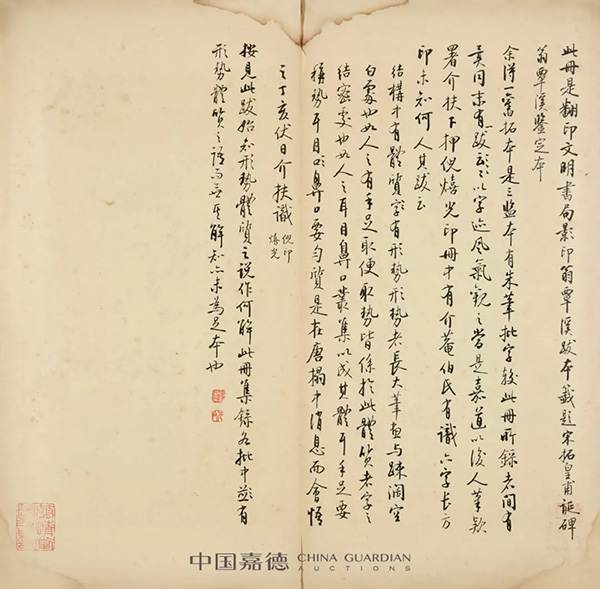 此册是翻印文明書局影印翁覃溪跋本籤题宋拓皇甫誕碑
翁覃溪鑒定本
余得一舊拓本是三监本有朱筆批字較此册所錄者間有
異同末有跋云以字迹風氣觀之當是嘉道以後人筆款
署介扶下押倪熺光印册中有介菴伯氏有識六字長方
印未知何人其跋云
結構中有體質字有形勢形勢者長大筆畫与疎闊空
白處也如人之有手足取便取勢皆係於此體質者字之
結密處也如人之耳目鼻口叢集以成其體耳手足要
稱勢耳目鼻口要勻質是在唐搨中消息而會悟
之丁亥伏日介扶識 倪印
熺光
按見此跋始知形勢體質之說作何解此册集錄各批中並有
形勢體質之語而無其解知亦未為足本也
中国嘉德 CHINA GUARDIAN
AUCTIONS